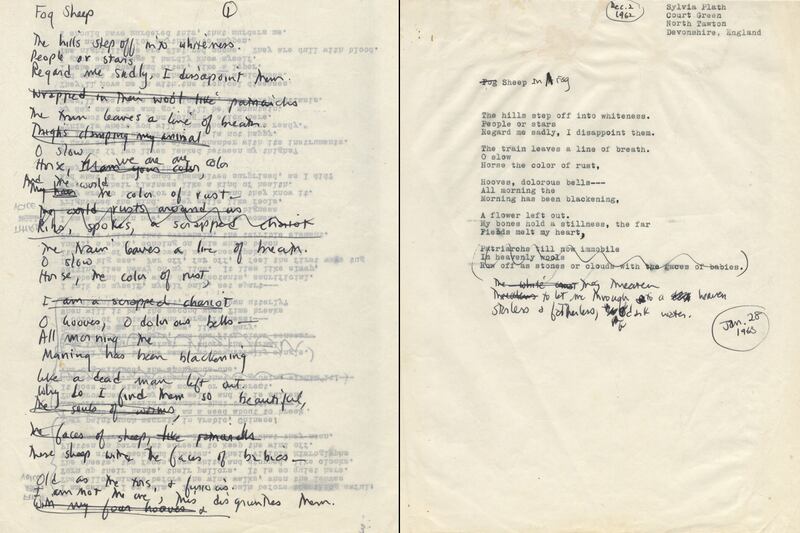 Fog Sheep
1
The hills step off into whiteness.
People or stars
Regard me sadly, I disappoint them.
Wrapped in their wool like patriarchs
The train leaves a line of breath.
Thighs clamping my animal
O slow
Horse, we are one color
I am your color,
And the world
the color of rust—
The world rusts around us
Ribs, spokes, a scrapped chariot
The train leaves a line of breath.
O slow
Horse, the color of rust,
I am a scrapped chariot
O hooves, O dolorous bells—
All morning the
Morning has been blackening
Like a dead man left out.
Why do I find them so beautiful,
The souls of worms,
The faces of sheep, like patriarchs
These sheep with the faces of babies—
Old as the
I am not the one, this disgruntles them.
With my four hooves &
Dec. 2
1962
Sylvia Plath
Court Green
North Tawton
Devonshire, England
Fog Sheep In A Fog
The hills step off into whiteness.
People or stars
Regard me sadly, I disappoint them.
The train leaves a line of breath.
O slow
Horse the color of rust,
Hooves, dolorous bells---
All morning the
Morning has been blackening,
A flower left out.
My bones hold a stillness, the far
Fields melt my heart,
Patriarchs till now immobile
In heavenly wools
Row off as stones or clouds with the faces of babies.)
They threaten
to let me through to a heaven
Starless & fatherless, a dark water.
Jan. 28
1963